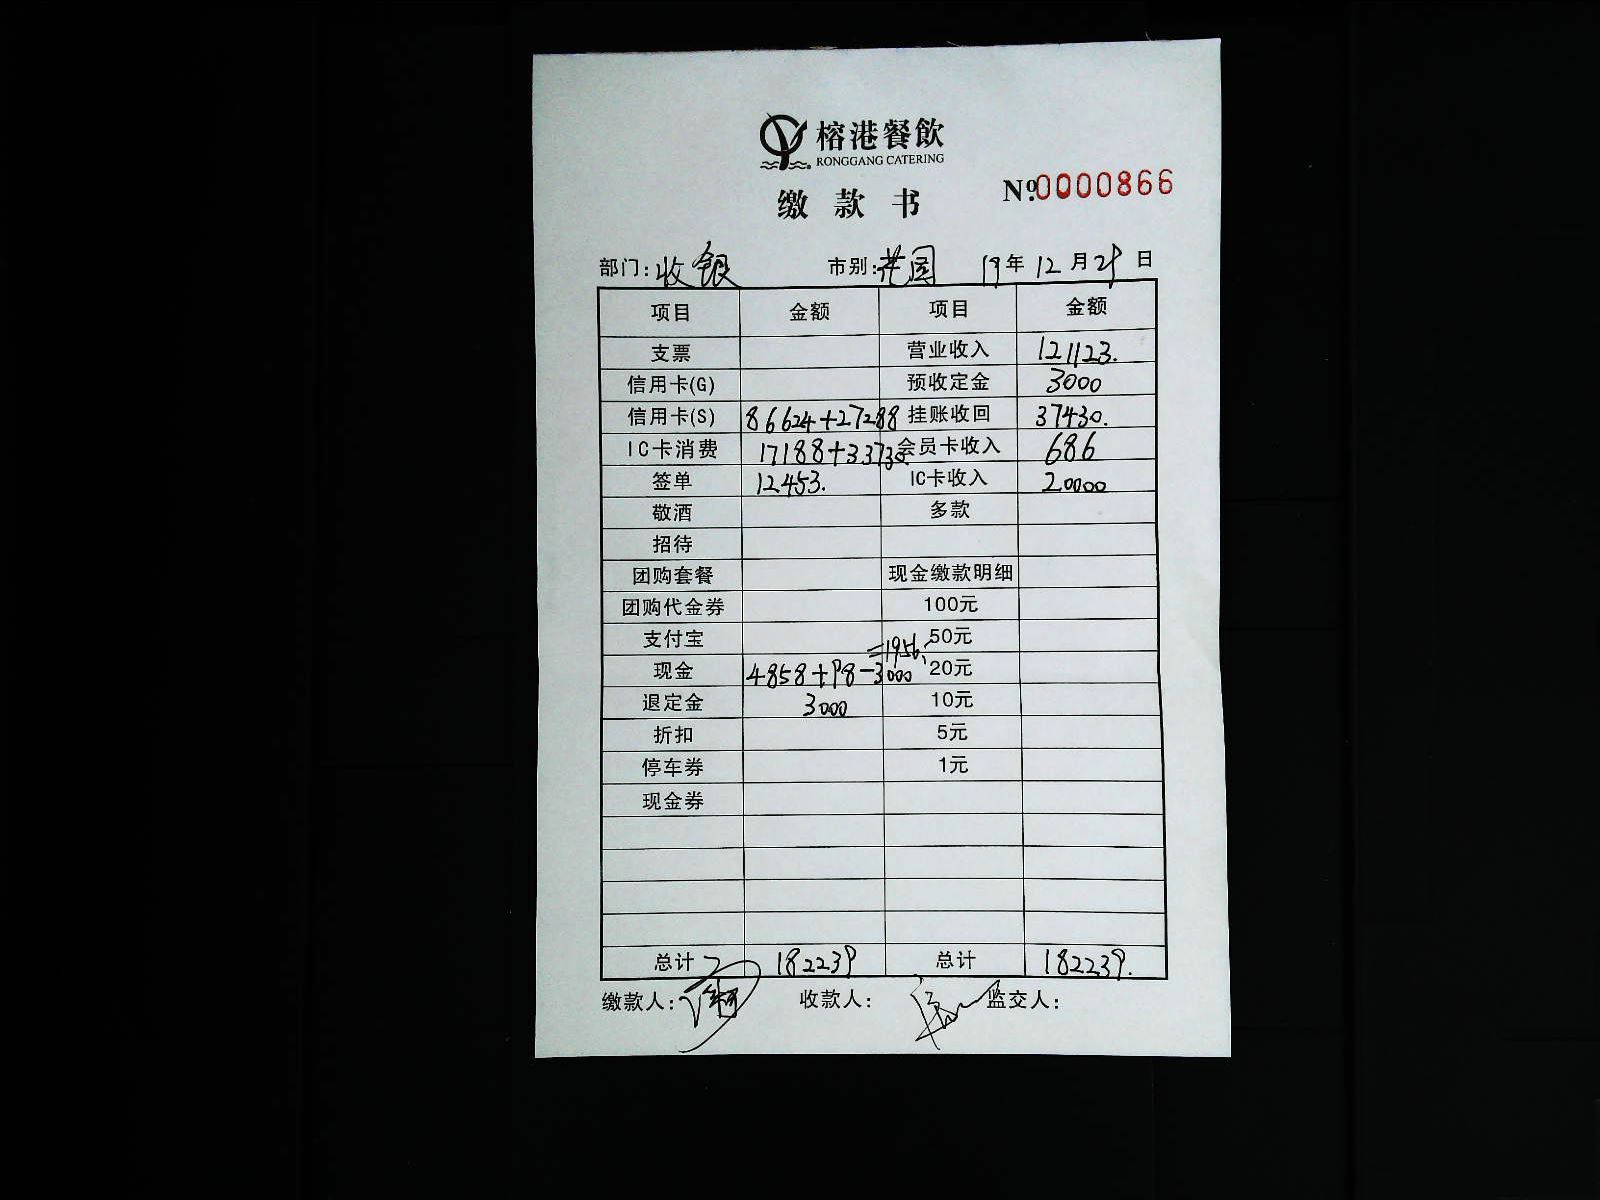 榕港餐飲
RONGGANG CATERING
缴款书 №0000866
部门:收银 市别:花园 19年12月29日
项目 金额 项目 金额
支票 营业收入 121123.
信用卡(G) 预收定金 3000
信用卡(S) 86624+27288 挂账收回 37430.
IC卡消费 17188+33730. 会员卡收入 686
签单 12453. IC卡收入 20000
敬酒 多款
招待
团购套餐 现金缴款明细
团购代金券 100元
支付宝 50元
=1956.
现金 4858+98-3000 20元
退定金 3000 10元
折扣 5元
停车券 1元
现金券
总计 182239 总计 182239.
缴款人: 收款人: 监交人: